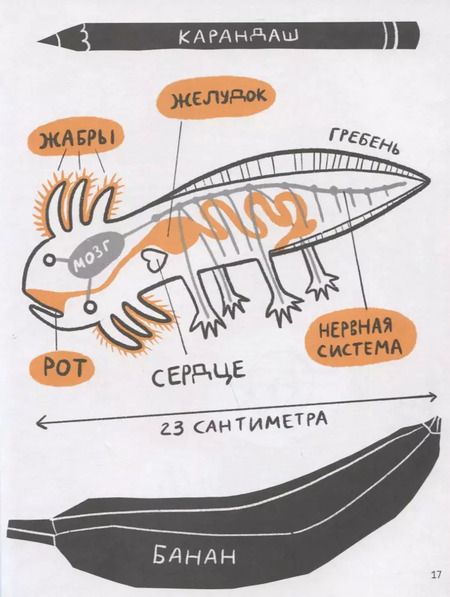 КАРАНДАШ
ЖЕЛУДОК
ЖАБРЫ
ГРЕБЕНЬ
МОЗГ
НЕРВНАЯ
СИСТЕМА
РОТ
СЕРДЦЕ
23 САНТИМЕТРА
БАНАН
17